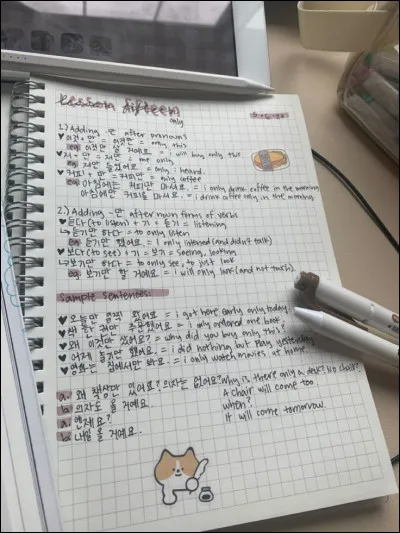 Lesson fifteen
only
1.) Adding -만 after pronouns
♥ 이것 + 만 = 이것만 = only this
eg. 이것만 살 거예요. = i will buy only this
♥ 저 + 만 = 저만 = me only
eg. 저만 들었어요. = only i heard.
♥ 커피 + 만 = 커피만 = only coffee
eg. 아침에는 커피만 마셔요. = i only drink coffee in the morning
아침에만 커피를 마셔요. = i drink coffee only in the morning
2.) Adding -만 after noun forms of verbs
♥ 듣다 (to listen) + 기 = 듣기 = listening
↳ 듣기만 하다 = to only listen
eg. 듣기만 했어요. = i only listened (and didn't talk)
♥ 보다 (to see) + 기 = 보기 = seeing, looking
↳ 보기만 하다 = to only see, to just look
eg. 보기만 할 거예요. = i will only look (and not touch).
Sample Sentences:
♥ 오늘만 일찍 왔어요 = i got here early only today.
♥ 책 한 권만 주문했어요. = i only ordered one book.
♥ 왜 이것만 샀어요? = why did you buy only this?
♥ 어제 놀기만 했어요. = i did nothing but play yesterday
♥ 영화는 집에서만 봐요. = i only watch movies at home.
a. 왜 책상만 있어요? 의자는 없어요? Why is there only a desk? No chair?
b. 의자도 올 거예요. A chair will come too.
a. 언제요? when?
b. 내일 올 거예요. It will come tomorrow.